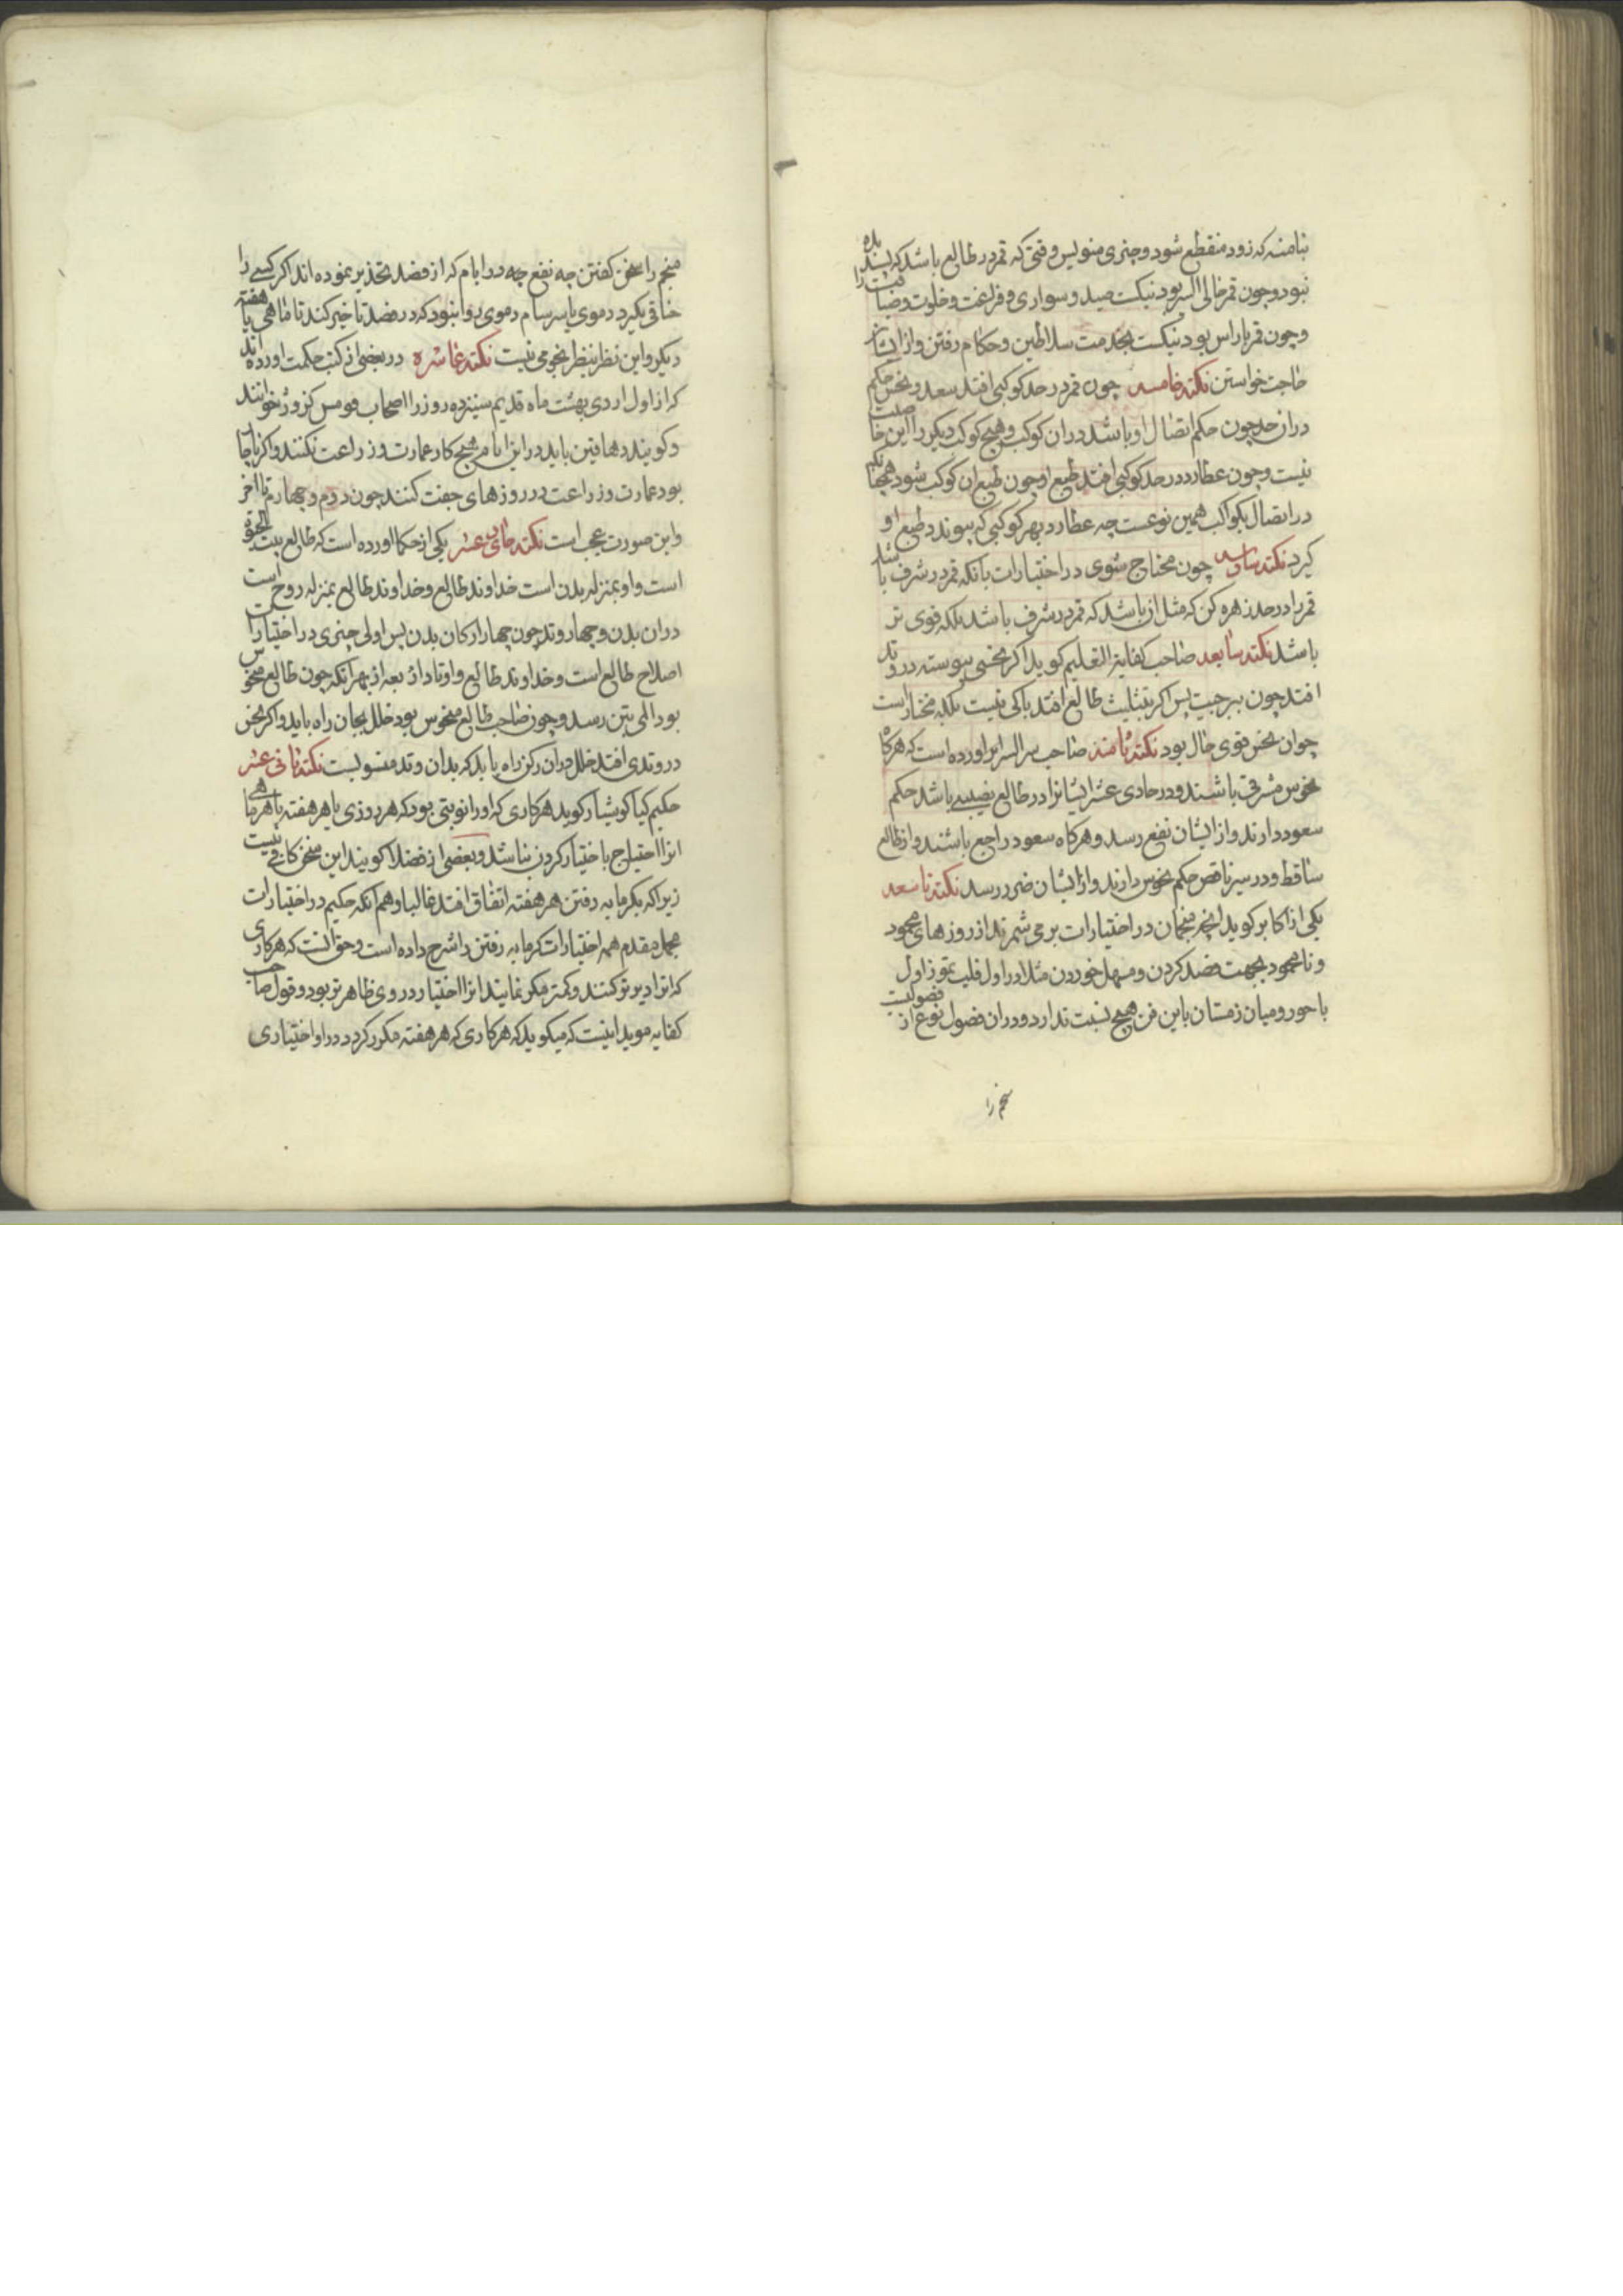 نبامنه که زود منقطع شود و چیزی منویس وقتی که قمر در طالع باشد که پسندیده
نبود و چون قمر خالی السیر بود نیکست صید و سواری و فراغت و خلوت و ضیافت را
و چون قمر باراس بود نیکست بخدمت سلاطین و حکام رفتن و از ایشان
حاجت خواستن نکته خامسه چون قمر در حد کوکبی افتد سعد و نحس حکم
دران حد چون حکم اتصال او باشد دران کوکب و هیچ کوکب دیکر را این خاصیت
نیست و چون عطارد در حد کوکبی افتد طبع او چون طبع ان کوکب شود همچنانکه
در اتصال بکواکب همین نوعست چه عطارد بهر کوکبی که پیوندد طبع او
کیرد نکته سادسه چون محتاج شوی در اختیارات بانکه قمر در شرف باشد
قمر را در حد زهره کن که مثل ان باشد که قمر در شرف باشد بلکه قوی تر
باشد نکته سابعه صاحب کفایة التعلیم کوید اکر نحسی پیوسته در وتد
افتد چون ببرجیت پس اکر بتثلیث طالع افتد باکی نیست بلکه مختار است
چوان نحس قوی حال بود نکته ثامنه صاحب سر السرایر اورده است که هرکاه
نحوس مشرقی باشند و در حادی عشر ایشانرا در طالع نصیبی باشد حکم
سعود دارند و از ایشان نفع رسد و هرکاه سعود راجع باشند و از طالع
ساقط و در سیر ناقص حکم نحوس دارند و از ایشان ضرر رسد نکته تاسعه
یکی از اکابر کوید انچه منجمان در اختیارات بر می شمرند از روزهای محمود
و نامحمود بجهت فصد کردن و مسهل خوردن مثلا در اول قلب تموز اول
باحور و میان زمستان باین فن هیچ نسبت ندارد و دران فصول نوع از فضولیست
منجم را
منجم را سخن کفتن چه نفع چه در ایام که از فصد تحذیر نموده اند اکر کسی را
خناقی بکیرد دموی یا سرسام دموی روا نبود که در فصد تاخیر کند تا ماهی یا هفته
دیکر و این نظر بنظر نجومی نیست نکته عاشره در بعضی از کتب حکمت اورده اند
که از اول اردی بهشت ماه قدیم سیزده روز را اصحاب فومس کزوژ خوانند
و کویند دهاقین باید در این ایام هیچ کار عمارت و زراعت نکنند و اکر ناچار
بود عمارت و زراعت در روزهای جفت کنند چون دوم و چهارم تا اخر
و این صورت عجب است نکته حادی عشر یکی از حکما اورده است که طالع بیت الحیوة
است و او بمنزله بدن است خداوند طالع و خداوند طالع بمنزله روح است
دران بدن و چهار وتد چون چهار ارکان بدن پس اولی چیزی در اختیارات
اصلاح طالع است و خداوند طالع و اوتاد اربعه از بهر انکه چون طالع منحوس
بود المی بتن رسد و چون صاحب طالع منحوس بود خلل بجان راه یابد و اکر نحس
در وتدی افتد خلل دران رکن راه یابد که بدان وتد منسوبست نکته ثانی عشر
حکیم کیا کوشیار کوید هرکاری که او را نوبتی بود که هر روزی یا هر هفته یا هر ماهی
انرا احتیاج باختیار کردن نباشد و بعضی از فضلا کویند این سخن کافی نیست
زیرا که بکرمابه رفتن هر هفته اتفاق افتد غالبا و هم انکه حکیم در اختیارات
مجمل مقدم همه اختیارات کرمابه رفتن را شرح داده است و حق انست که هرکاری
که انرا دیرتر کنند و کمتر مکرر نمایند انرا اختیار در وی ظاهرتر بود و قول صاحب
کفایه موید اینست که میکوید که هرکاری که هر هفته مکرر کردد در او اختیاری